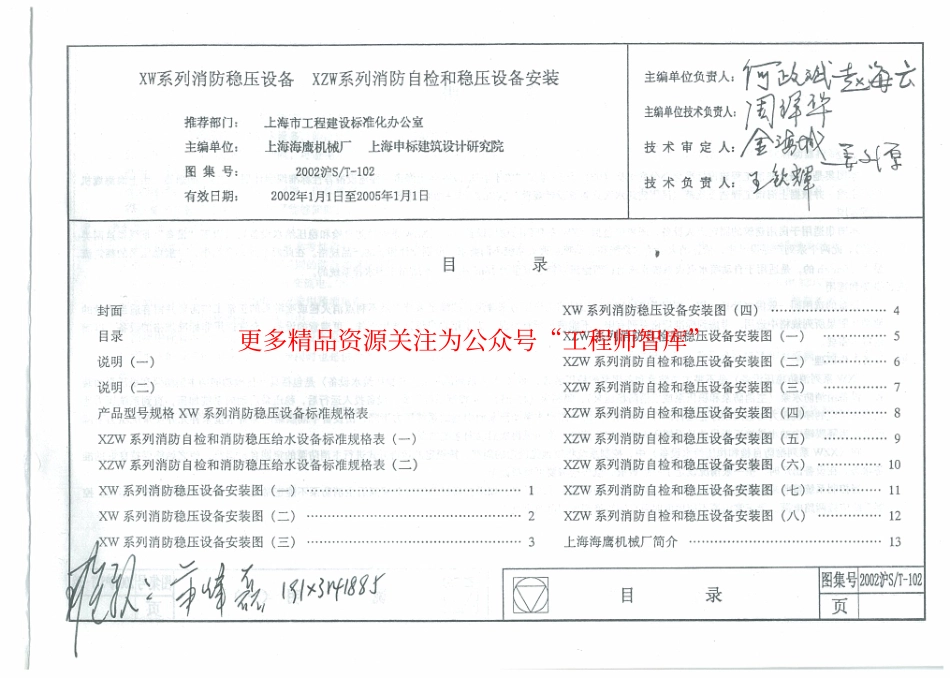 XW系列消防稳压设备 XZW系列消防自检和稳压设备安装
推荐部门： 上海市工程建设标准化办公室
主编单位： 上海海鹰机械厂 上海申标建筑设计研究院
图 集 号： 2002沪S/T-102
有效日期： 2002年1月1日至2005年1月1日
主编单位负责人：何政斌 赵海云
主编单位技术负责人：
技 术 审 定 人：
技 术 负 责 人：王钦辉
目 录
封面
目录
说明（一）
说明（二）
产品型号规格 XW 系列消防稳压设备标准规格表
XZW 系列消防自检和消防稳压给水设备标准规格表（一）
XZW 系列消防自检和消防稳压给水设备标准规格表（二）
XW 系列消防稳压设备安装图（一） 1
XW 系列消防稳压设备安装图（二） 2
XW 系列消防稳压设备安装图（三） 3
XW 系列消防稳压设备安装图（四） 4
XZW 系列消防自检和稳压设备安装图（一） 5
XZW 系列消防自检和稳压设备安装图（二） 6
XZW 系列消防自检和稳压设备安装图（三） 7
XZW 系列消防自检和稳压设备安装图（四） 8
XZW 系列消防自检和稳压设备安装图（五） 9
XZW 系列消防自检和稳压设备安装图（六） 10
XZW 系列消防自检和稳压设备安装图（七） 11
XZW 系列消防自检和稳压设备安装图（八） 12
上海海鹰机械厂简介 13
更多精品资源关注为公众号“工程师智库”
目 录
图集号 2002沪S/T-102
页